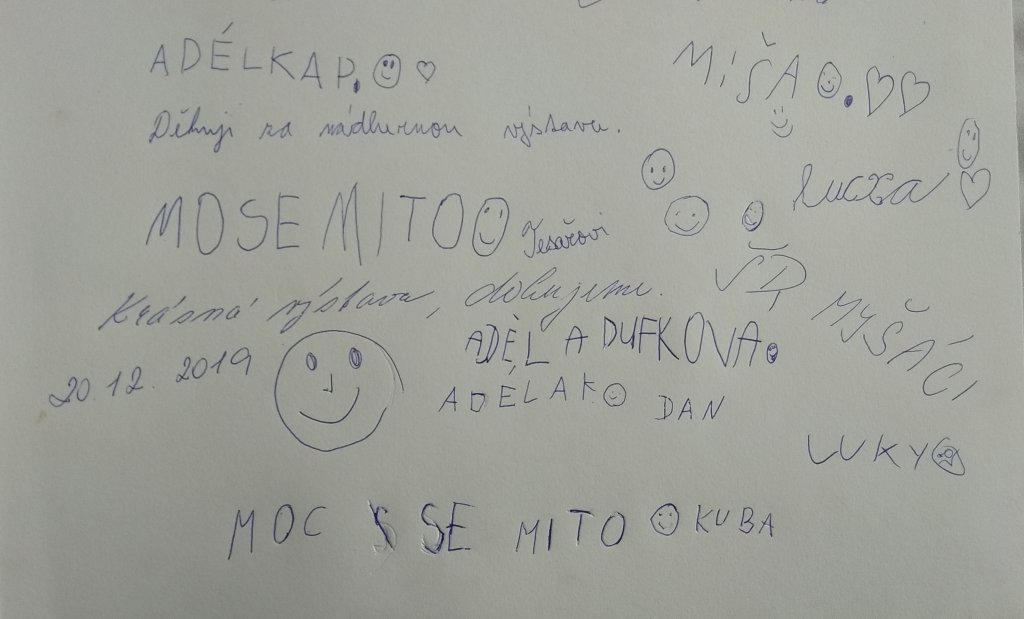 ADÉLKA P.
MÍŠA
Děkuji za nádhernou výstavu.
lucka
MOSE MI TO
Tesařovi
ŠD
Krásná výstava, děkujeme.
MYŠÁCI
20.12.2019
ADÉLA DUFKOVA.
ADÉLA K.
DAN
LUKY
MOC SE MITO KUBA